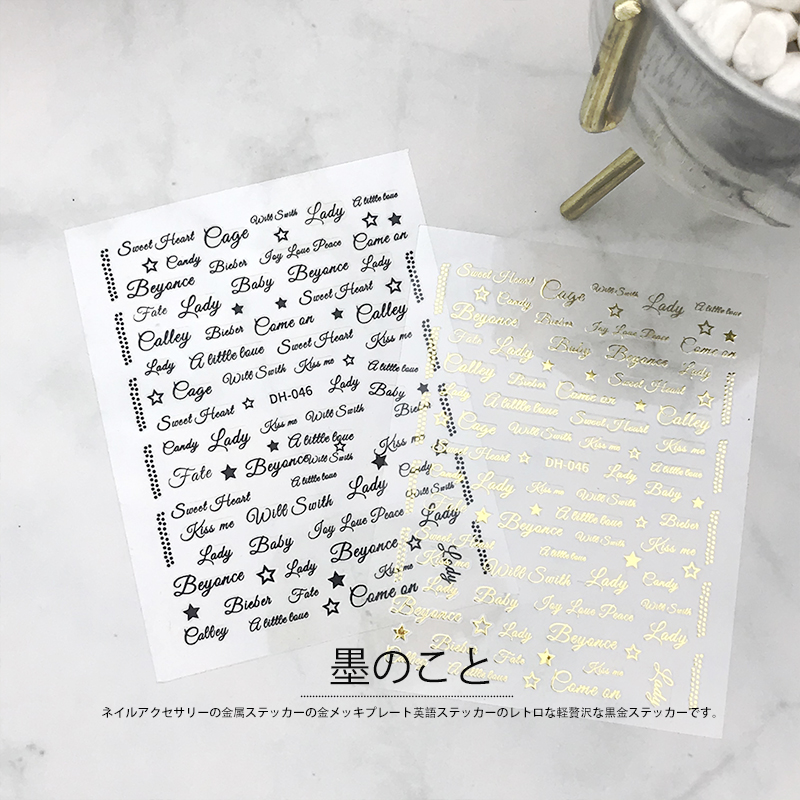 Sweet Heart Cage Will Swith Lady A little love
Candy Bieber Joy Love Peace Come on
Beyonce Baby Beyonce Lady
Fate Lady Sweet Heart
Calley Bieber Come on Calley
Lady A little loue Sweet Heart Kiss me
Cage Will Swith Kiss me A little loue
Sweet Heart DH-046 Lady Baby
Candy Lady Kiss me Will Swith Bieber
Fate Beyonce Will Swith A little loue Kiss me
A little loue Lady Candy
Sweet Heart Will Swith Will Swith
Kiss me Joy Loue Peace Lady
Lady Baby Beyonce Lady
Beyonce Lady Kiss me
Bieber Fate Come on
Calley A little loue
Sweet Heart Cage Will Swith Lady A little loue
Candy Bieber Joy Loue Peace Come on
Beyonce Baby Beyonce Lady
Fate Lady Sweet Heart
Calley Bieber Come on Calley
Lady A little loue Sweet Heart Kiss me
Cage Will Swith Kiss me A little loue
DH-046 Lady Baby
Lady Kiss me Will Swith Bieber
Beyonce A little loue Kiss me
A little loue Candy
Sweet Heart Will Swith Lady Will Swith
Kiss me Joy Loue Peace Lady
Lady Baby Beyonce Lady
Beyonce Lady Kiss me
Bieber Fate Come on
A little loue
墨のこと
ネイルアクセサリーの金属ステッカーの金メッキプレート英語ステッカーのレトロな軽贅沢な黒金ステッカーです。